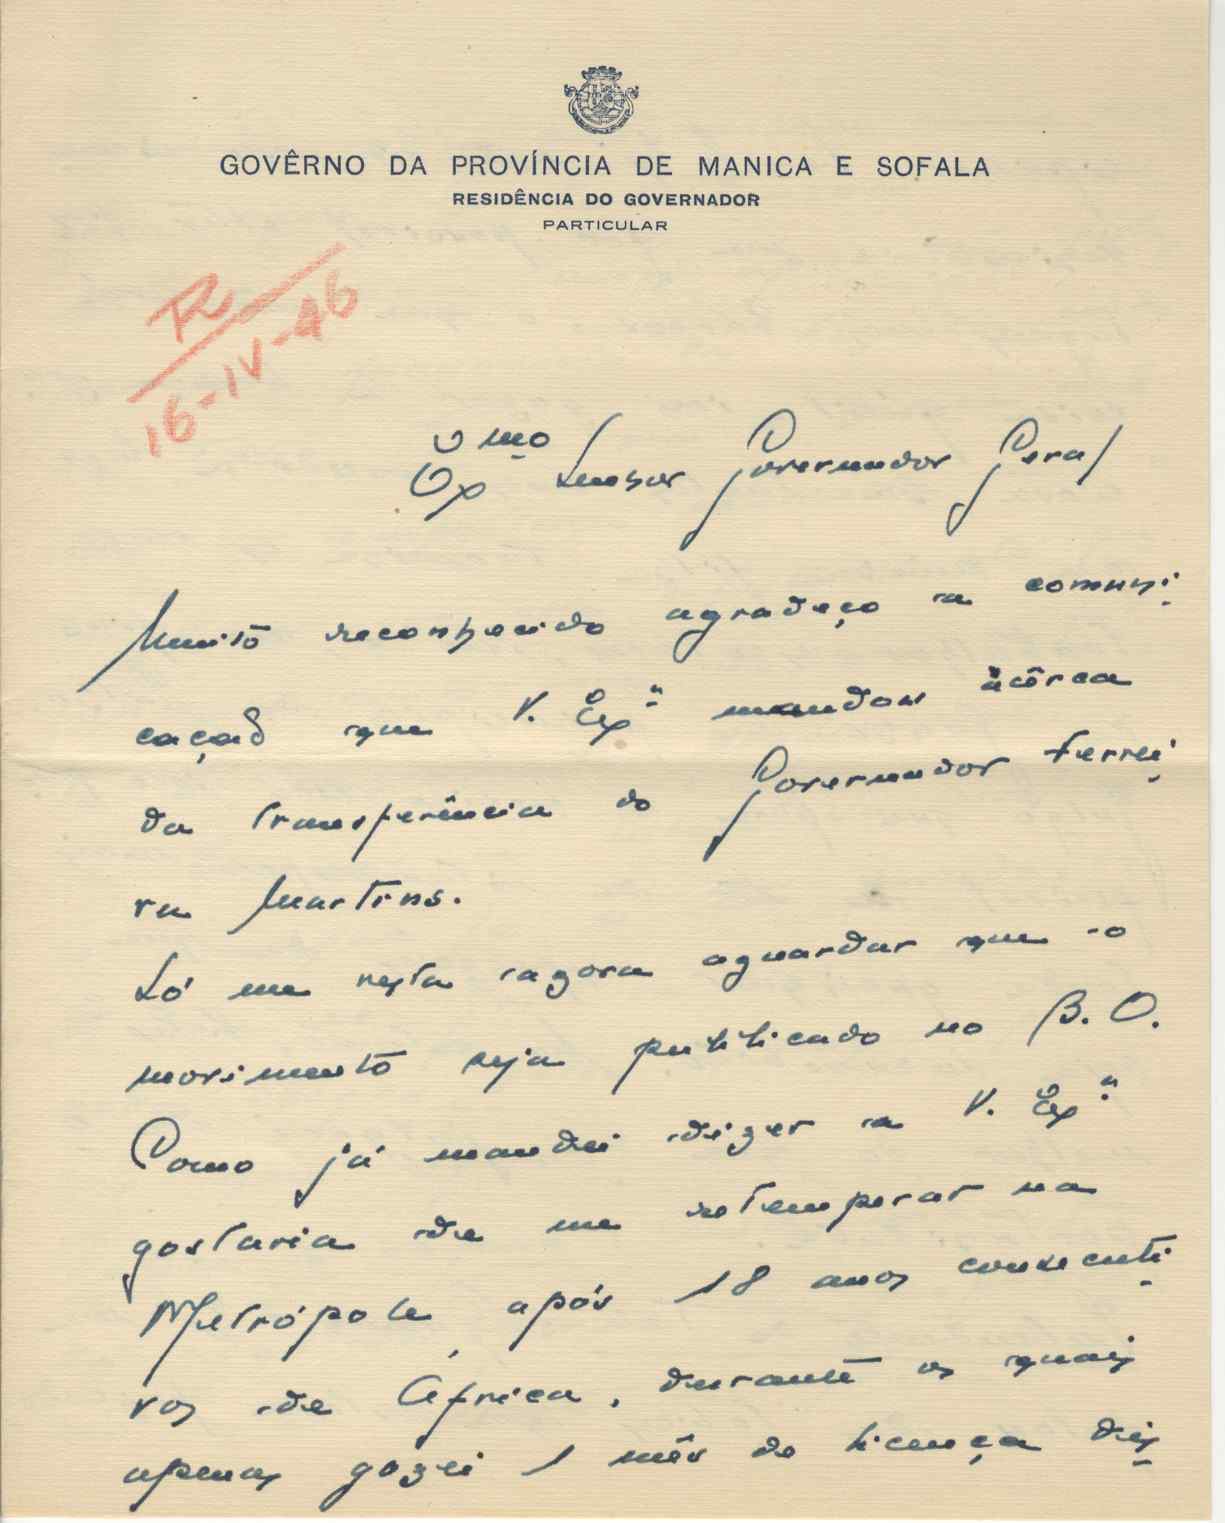 GOVÊRNO DA PROVÍNCIA DE MANICA E SOFALA
RESIDÊNCIA DO GOVERNADOR
PARTICULAR
R
16-IV-46
Exmo Senhor Governador Geral
Muito reconhecido agradeço a comuni-
cação que V. Exª mandou àcêrca
da transferência do Governador Ferrei-
ra Martins.
Só me resta agora aguardar que o
movimento seja publicado no B. O.
Como já mandei dizer a V. Exª
gostaria de me retemperar na
Metrópole, após 18 anos consecuti-
vos de África, durante os quais
apenas gozei 1 mês de licença dis-